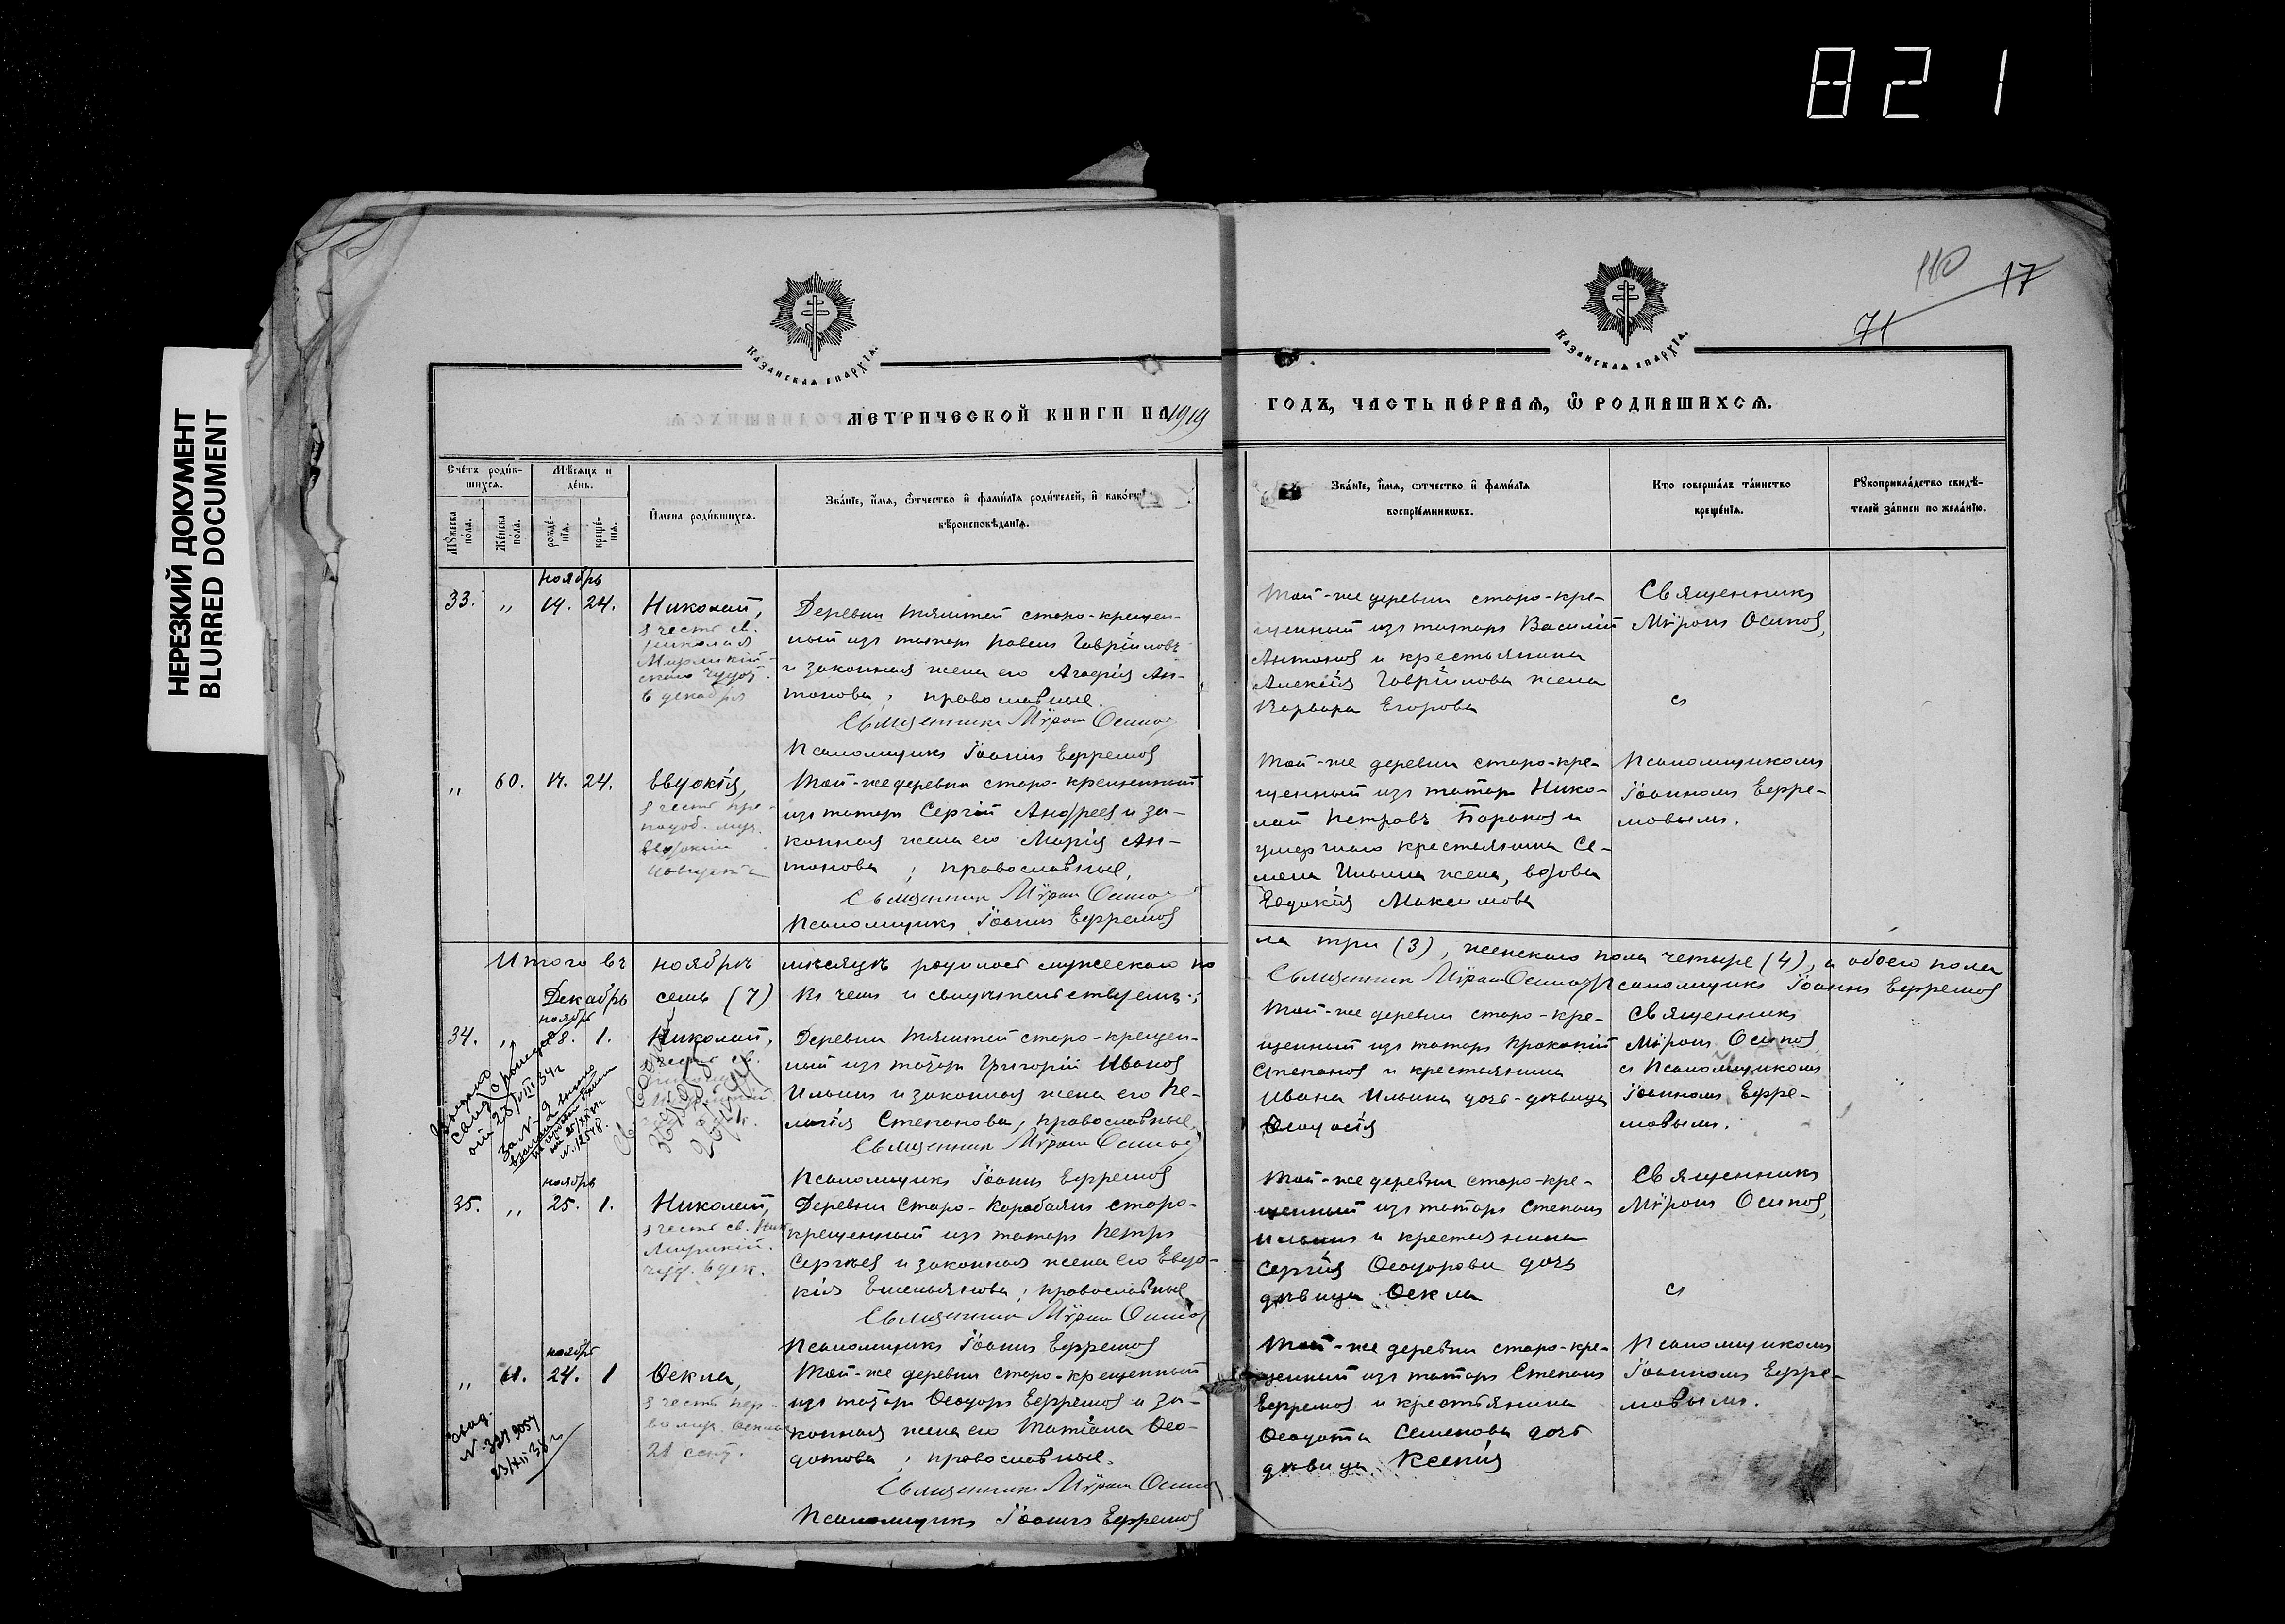 821
НЕРЕЗКИЙ ДОКУМЕНТ
BLURRED DOCUMENT
110
17
71
Казанская епархїѧ.
Казанская епархїѧ.
МЕТРИЧЕСКОЙ КНИГИ НА 1919
ГОДЪ, ЧАСТЬ ПЕРВАЯ, Ѡ РОДИВШИХСЯ.
Счетъ родившихся.
Мѣсяцъ и день.
Мужеска пола.
Женска пола.
рожденія.
крещенія.
Имена родившихся.
Званіе, имя, отчество и фамилія родителей, и какого
вѣроисповѣданія.
Званіе, имя, отчество и фамилія
воспріемниковъ.
Кто совершалъ таинство
крещенія.
Рукоприкладство свидѣ-
телей записи по желанію.
ноябрь
33. „ 19. 24.
Николай,
въ честь св.
Николая
Мирликій-
скаго чудот.
6 декабря
Деревни Тямтей старо-крещен-
ный изъ татаръ Павелъ Гавріиловъ
и законная жена его Агафія Ан-
тонова; православные.
Священникъ Мѵронъ Осиповъ
Псаломщикъ Іоаннъ Ефремовъ
Той-же деревни старо-кре-
щенный изъ татаръ Василій
Антоновъ и крестьянина
Алексія Гавріилова жена
Варвара Егорова
Священникъ
Мѵронъ Осиповъ,
съ
„ 60. 17. 24.
Евдокія,
въ честь пре-
подоб. муч.
Евдокіи
Той-же деревни старо-крещенный
изъ татаръ Сергій Андреевъ и за-
конная жена его Марія Ан-
тонова; православные,
Священникъ Мѵронъ Осиповъ
Псаломщикъ Іоаннъ Ефремовъ
Той-же деревни старо-кре-
щенный изъ татаръ Нико-
лай Петровъ Барановъ и
умершаго крестьянина Се-
мена Ильина жена, вдова
Евдокія Максимова
Псаломщикомъ
Іоанномъ Ефре-
мовымъ.
Итого въ ноябрѣ мѣсяцѣ родилось мужескаго по
ла три (3), женскаго пола четыре (4), а обоего пола
семь (7) въ чемъ и свидѣтельствуемъ:
Священникъ Мѵронъ Осиповъ Псаломщикъ Іоаннъ Ефремовъ
Декабрь
ноябрь
34. „ 28. 1.
Николай,
Деревни Тямтей старо-крещен-
ный изъ татаръ Григорій Ивановъ
Ильинъ и законная жена его Пе-
лагія Степанова, православные,
Священникъ Мѵронъ Осиповъ
Псаломщикъ Іоаннъ Ефремовъ
Той-же деревни старо-кре-
щенный изъ татаръ Прокопій
Степановъ и крестьянина
Ивана Ильина дочь-дѣвица
Ѳеодосія
Священникъ
Мѵронъ Осиповъ
съ Псаломщикомъ
Іоанномъ Ефре-
мовымъ.
ноябрь
35. „ 25. 1.
Николай,
въ честь св. Ник.
Мирликій.
чуд. 6 дек.
Деревни Старо-Карабаянъ старо-
крещенный изъ татаръ Петръ
Сергѣевъ и законная жена его Евдо-
кія Емельянова; православные
Священникъ Мѵронъ Осиповъ
Псаломщикъ Іоаннъ Ефремовъ
Той-же деревни старо-кре-
щенный изъ татаръ Степанъ
Ильинъ и крестьянина
Сергія Ѳеодорова дочь
дѣвица Ѳекла
Священникъ
Мѵронъ Осиповъ,
съ
ноябрь
„ 61. 24. 1
Ѳекла,
въ честь пер-
вомуч. Ѳеклы
24 сент.
свид.
Той-же деревни старо-крещенный
изъ татаръ Ѳеодоръ Ефремовъ и за-
конная жена его Татіана Ѳео-
дотова; православные.
Священникъ Мѵронъ Осиповъ
Псаломщикъ Іоаннъ Ефремовъ
Той-же деревни старо-кре-
щенный изъ татаръ Степанъ
Ефремовъ и крестьянина
Ѳеодота Семенова дочь
дѣвица Ксенія
Псаломщикомъ
Іоанномъ Ефре-
мовымъ.